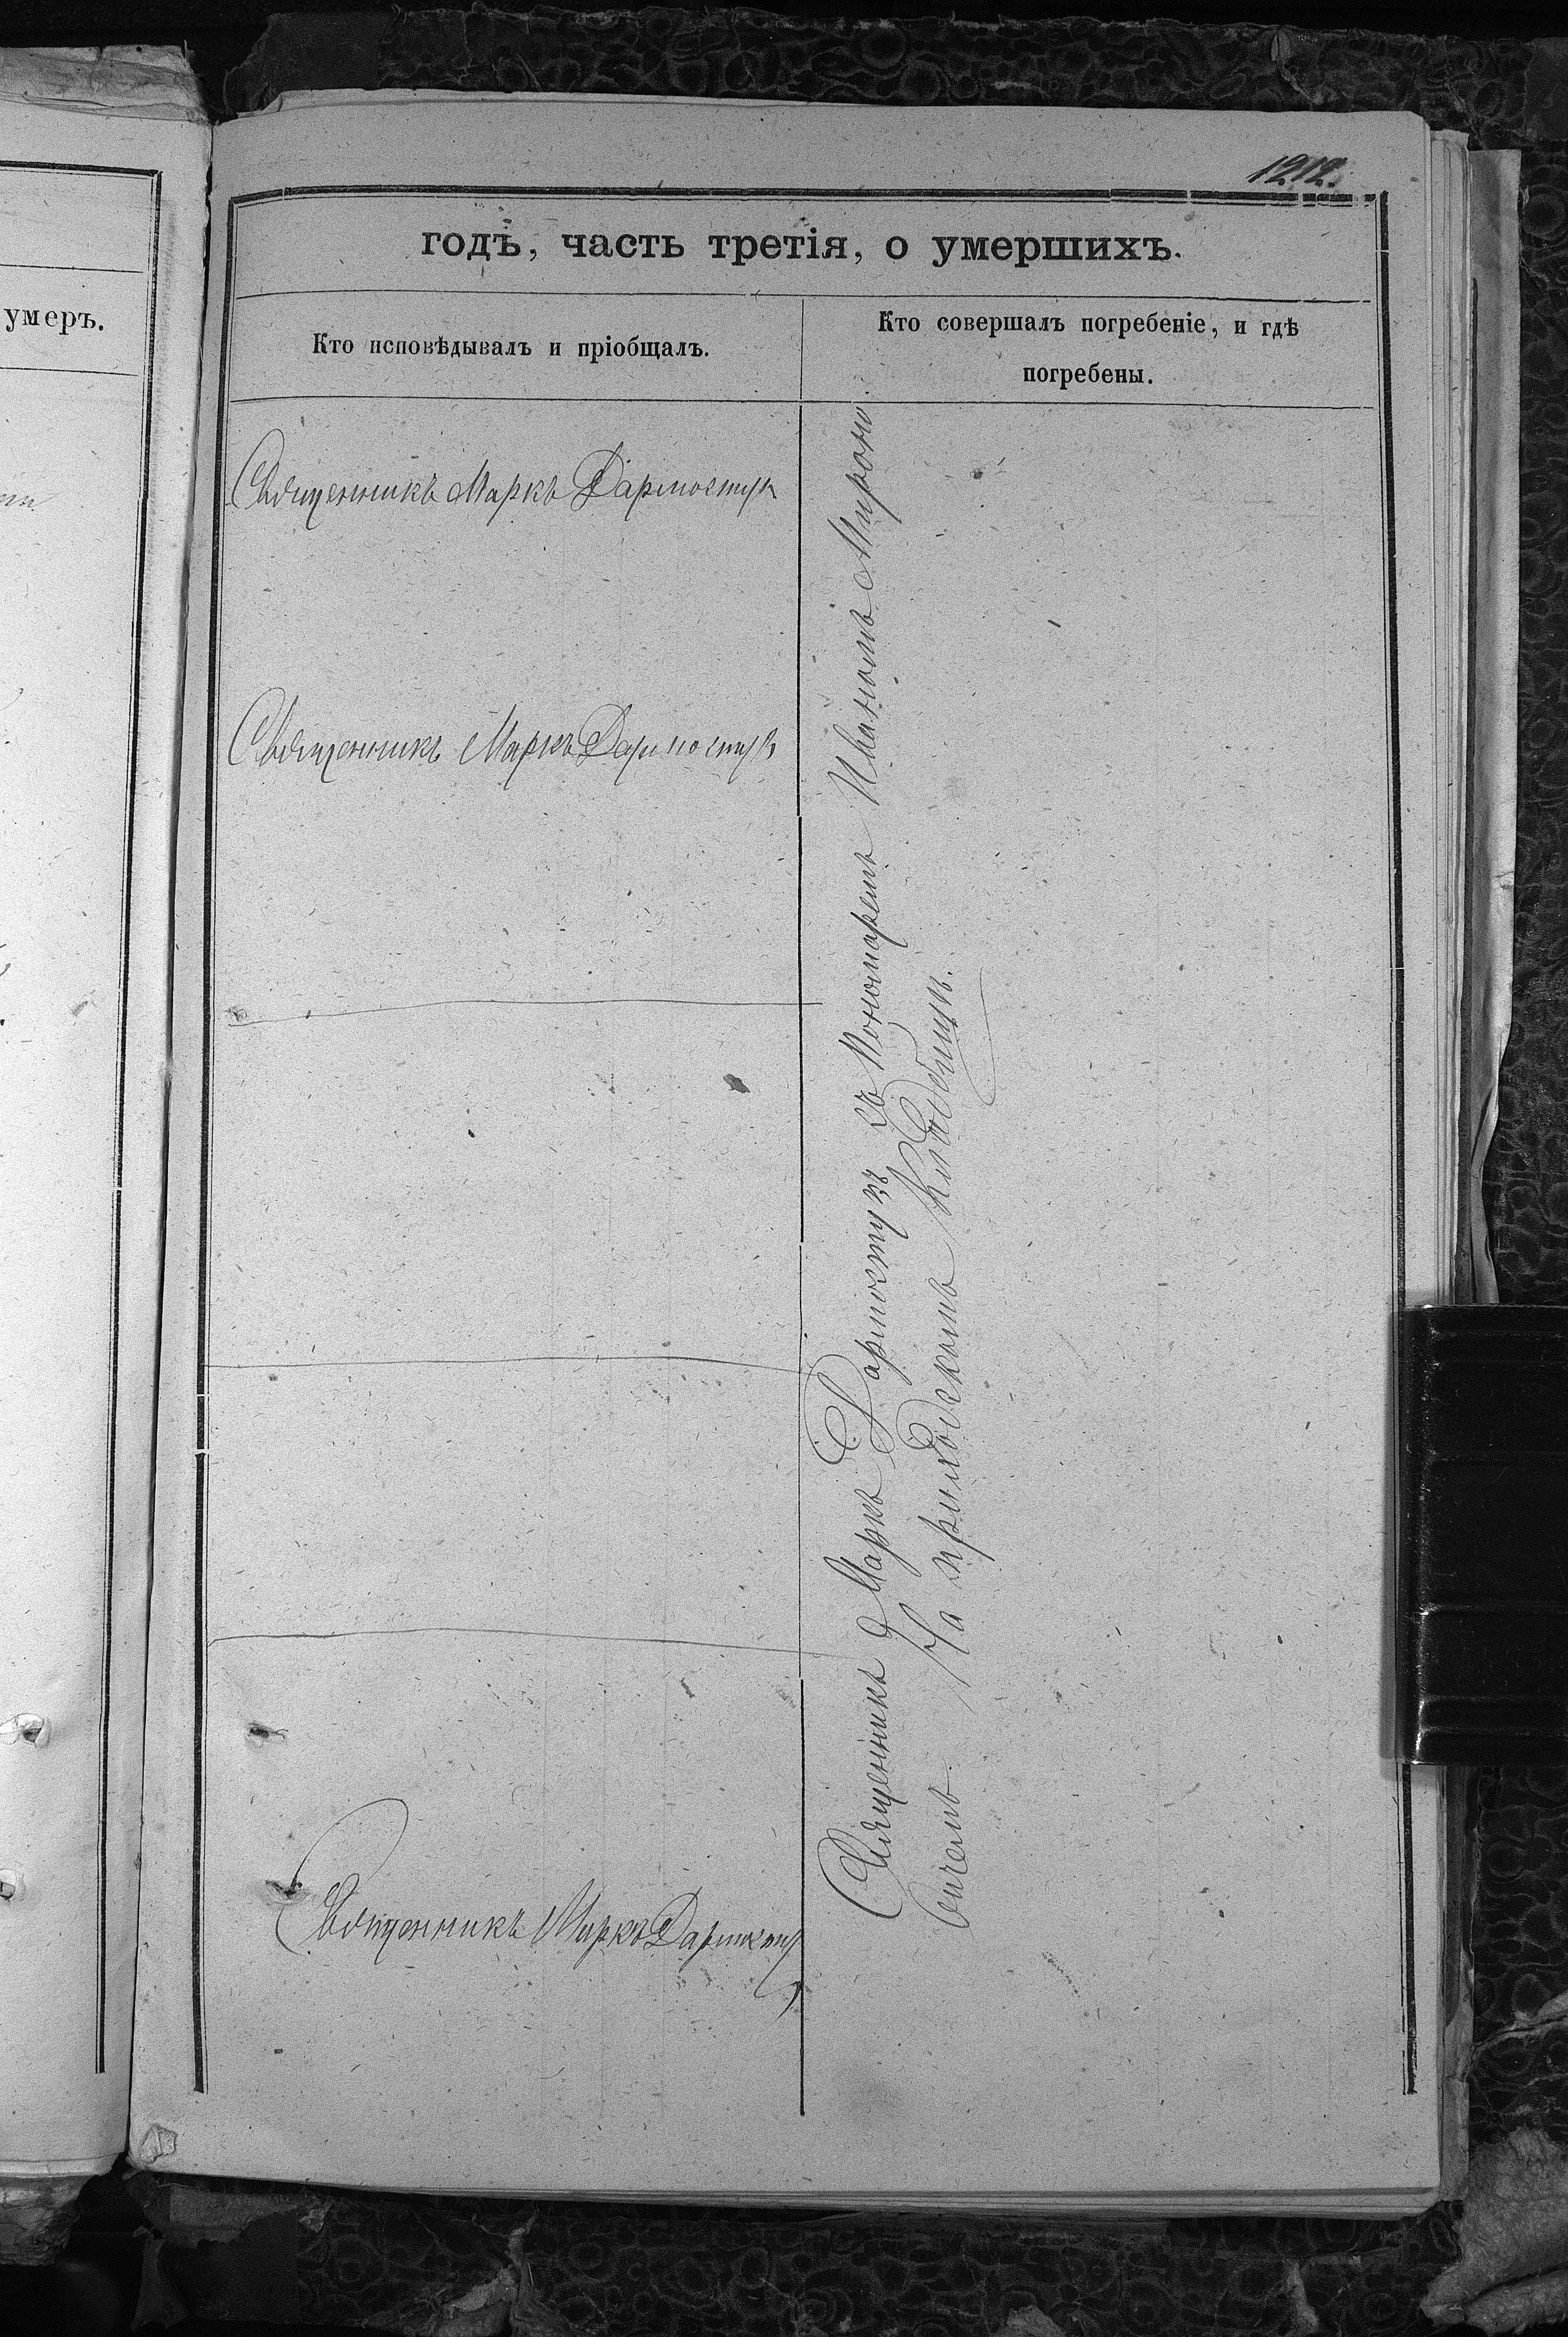 1212.
годъ, часть третія, о умершихъ.
умеръ.
Кто исповѣдывалъ и пріобщалъ.
Кто совершалъ погребеніе, и гдѣ
погребены.
Священникъ Маркъ Дармостук
Священникъ Маркъ Дармостук
Священникъ Маркъ Дармостук
Священникъ Маркъ Дармостукъ съ Пономаремъ Иваномъ Мироно
вичемъ На приходскомъ кладбищѣ.